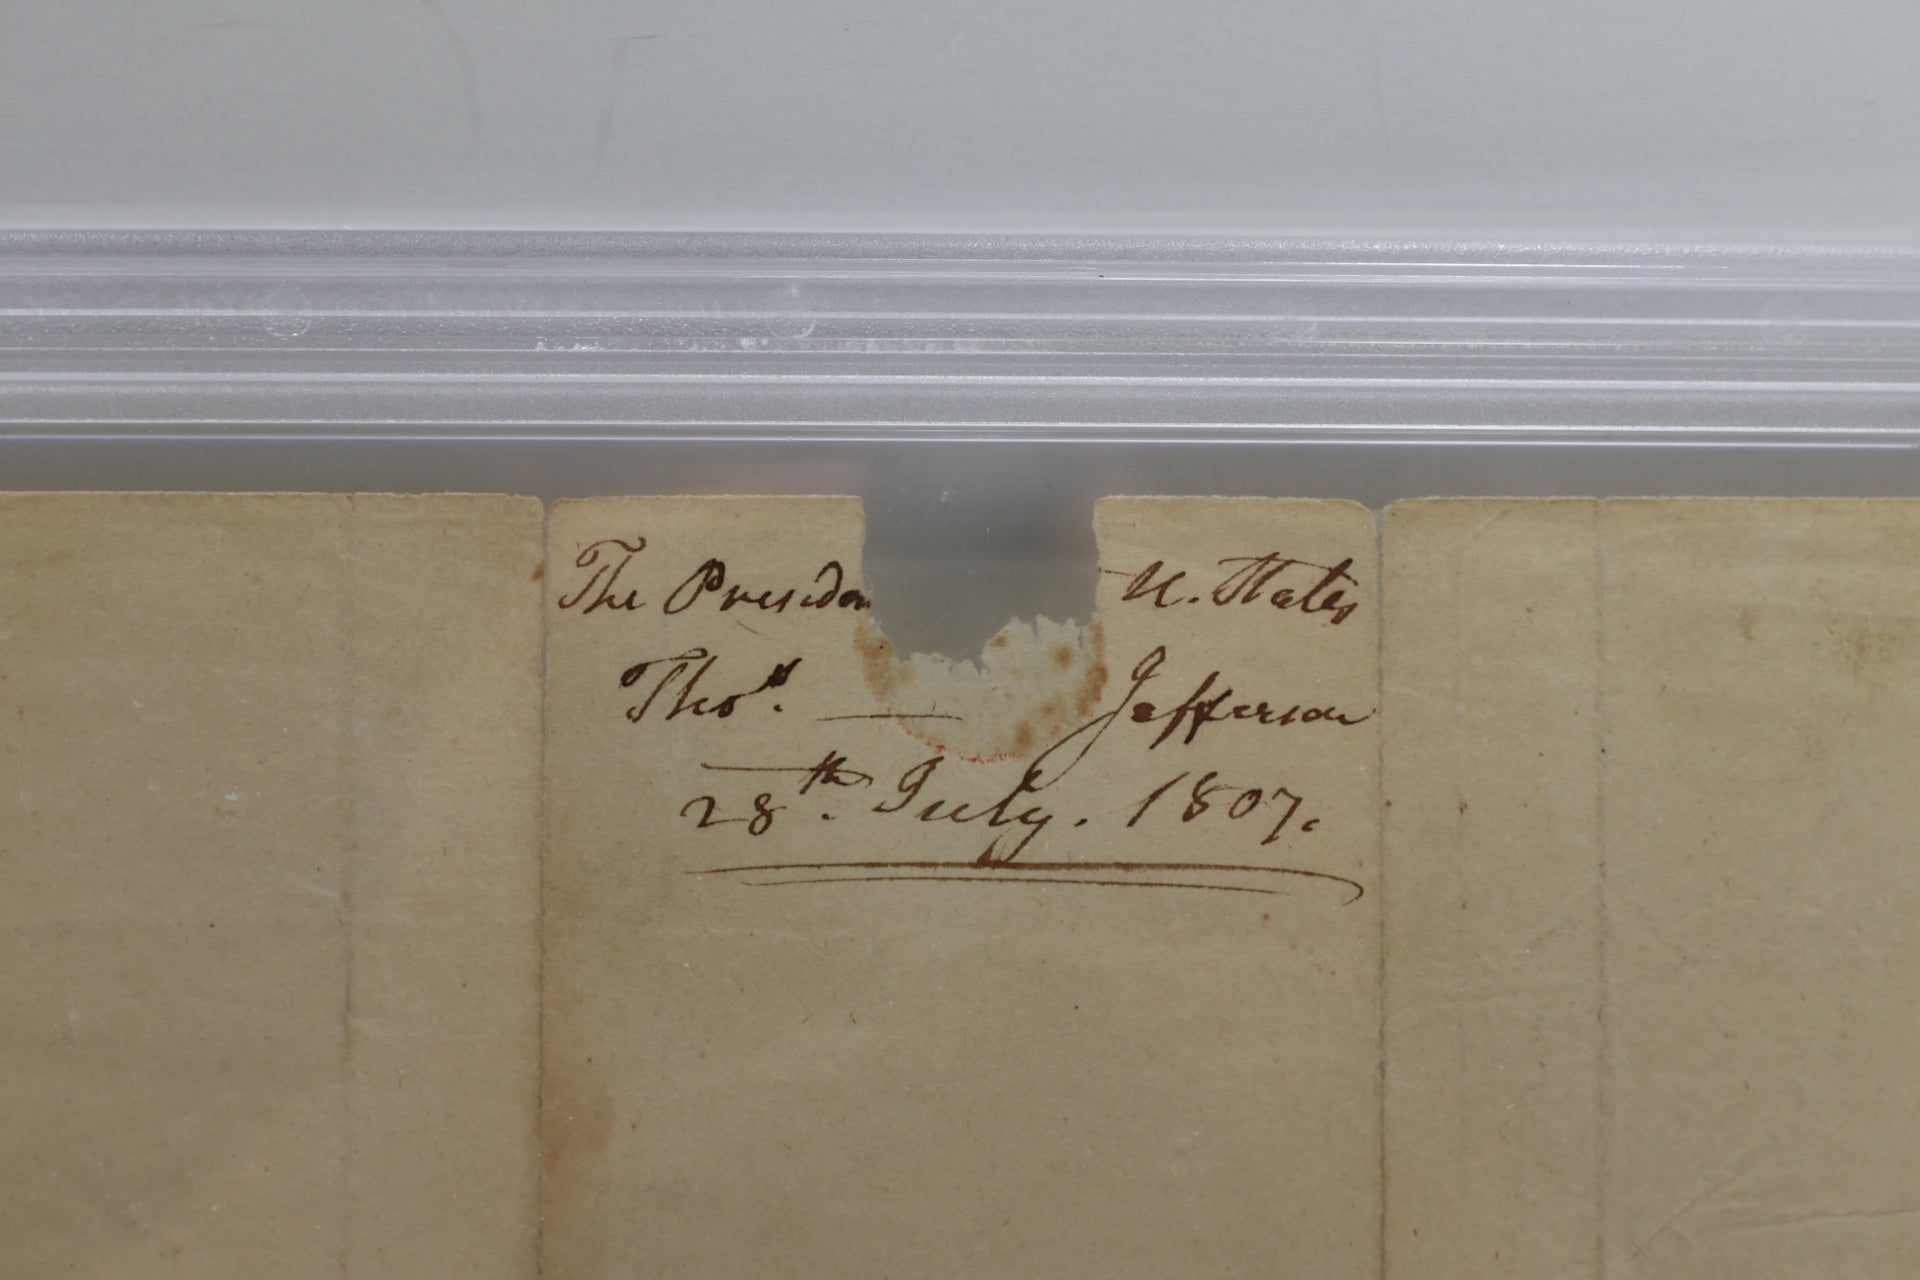 The Presiden U. States
Thos. — Jefferson
28th. July. 1807.